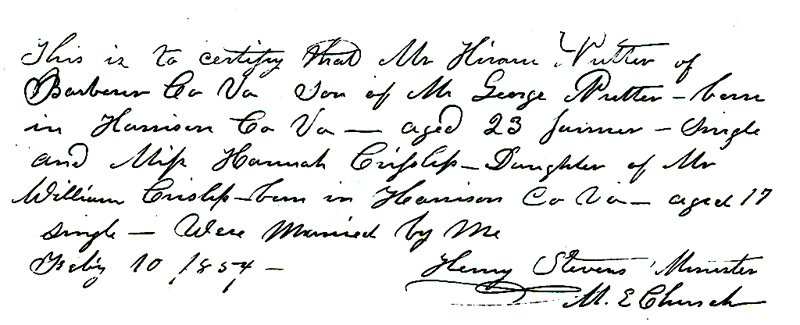 This is to certify that Mr Hiram Nutter of
Barbour Co Va Son of Mr George Nutter - born
in Harrison Co Va — aged 23 farmer - Single
and Miss Hannah Crislip - Daughter of Mr
William Crislip - born in Harrison Co Va - aged 17
Single — Were Married by Me
Feby 10 1854 -
Henry Stevens Minister
M. E Church